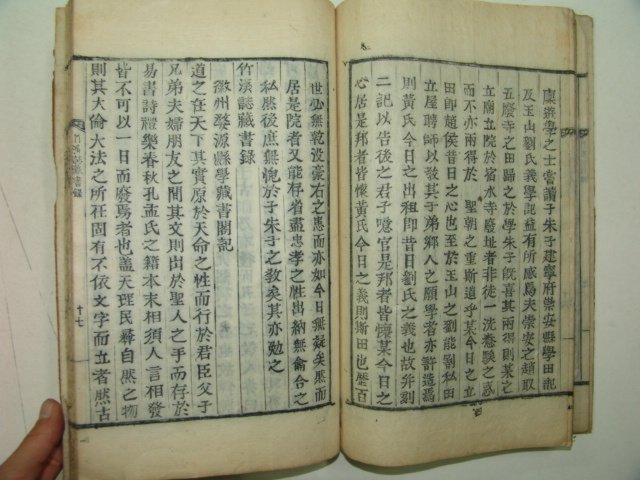 廩遊學之士嘗讀子朱子建寧府崇安縣學田記
及玉山劉氏義學記益有所感焉夫崇安之趙取
五廢寺之田歸之於學朱子旣喜其兩得則某之
立廟立院於宿水寺廢址者非徒一洗愚駿之惑
而不亦兩得於 聖朝之重斯道乎某今日之立
田卽趙侯昔日之心也至於玉山之劉能割私田
立屋聘師以敎其子弟鄉人之願學者亦許造焉
則黃氏今日之出租卽昔日劉氏之義也故幷刻
二記以告後之君子噫官是邦者皆懷某今日之
心居是邦者皆懷黃氏今日之義則斯田也歷百
世弘無乾沒豪右之患而亦如今日無疑矣然而
居是院者又能存省盡忠孝之性出納無侖合之
私然後庶無愧於子朱子之敎矣其亦勉之
竹溪誌藏書錄
徽州婺源縣學藏書閣記
道之在天下其實原於天命之性而行於君臣父子
兄弟夫婦朋友之間其文則出於聖人之手而存於
易書詩禮樂春秋孔孟氏之籍本末相須人言相發
皆不可以一日而廢焉者也盖天理民彛自然之物
則其大倫大法之所在固有不依文字而立者然古
十七